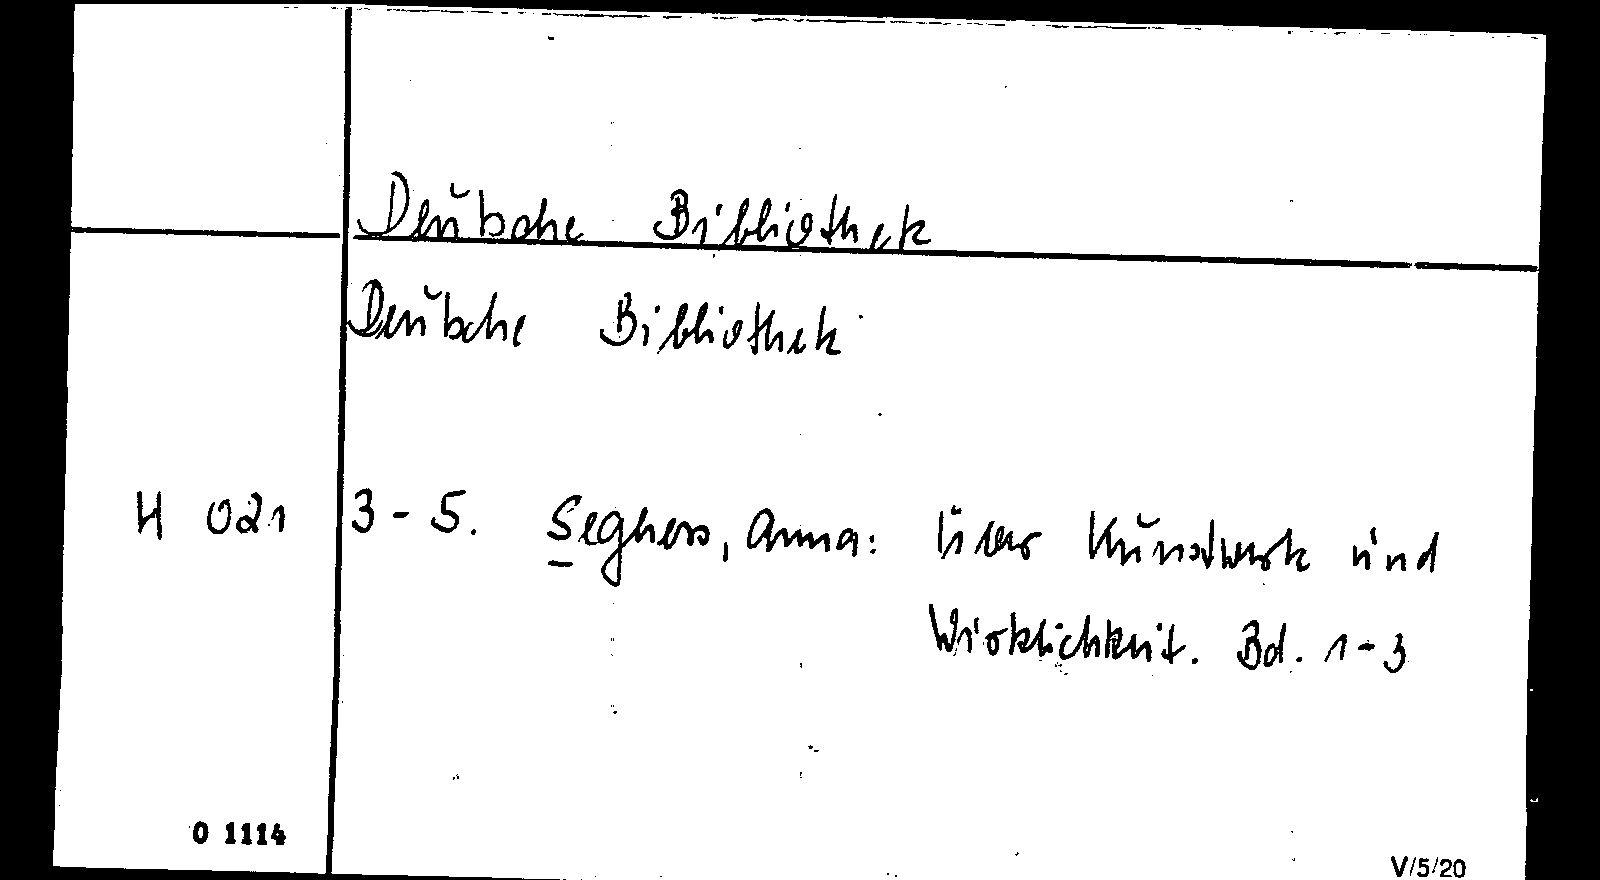 Deutsche Bibliothek
Deutsche Bibliothek
H 021 3-5. Seghers, Anna: Über Kunstwerk und
Wirklichkeit. Bd. 1-3
O 1114
V/5/20